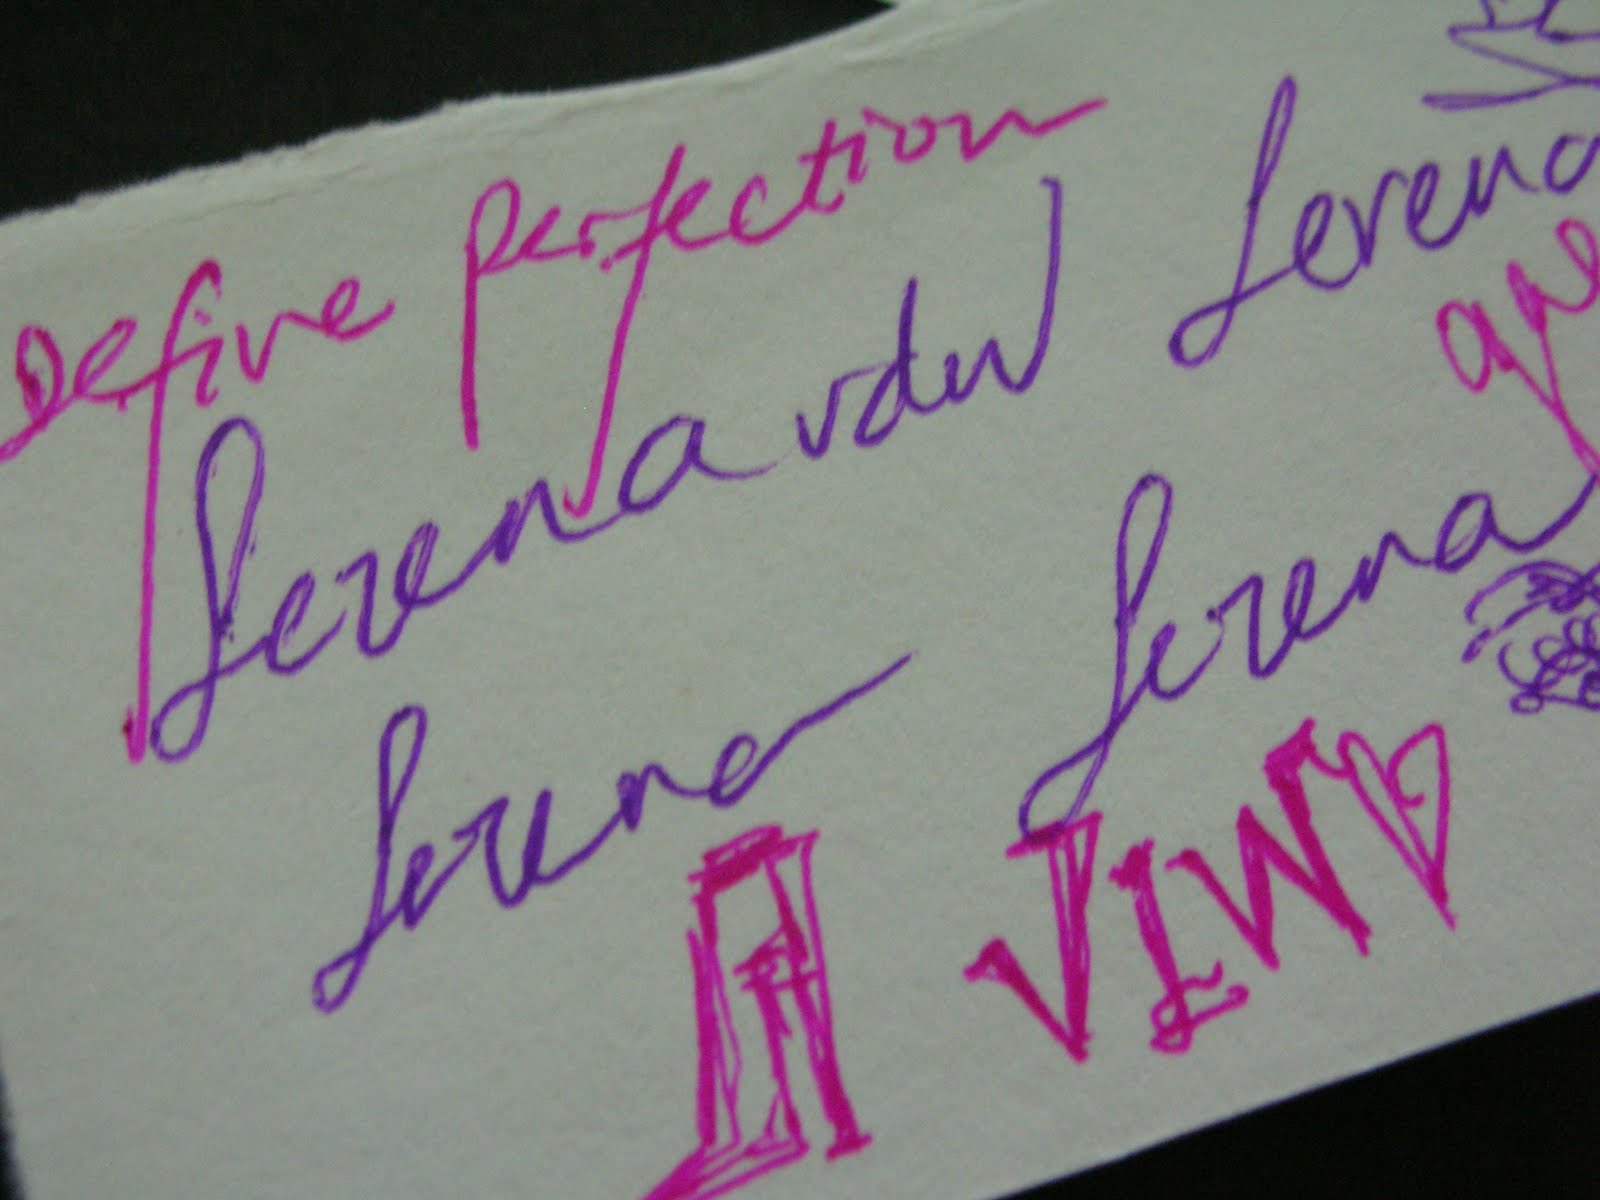 Define perfection
Serena vdw
Serena
Serena
Serena